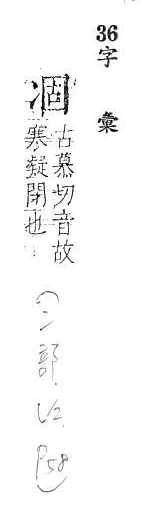 36字彙
涸
古慕切音故
寒凝閉也
(冫部.V2.P58)